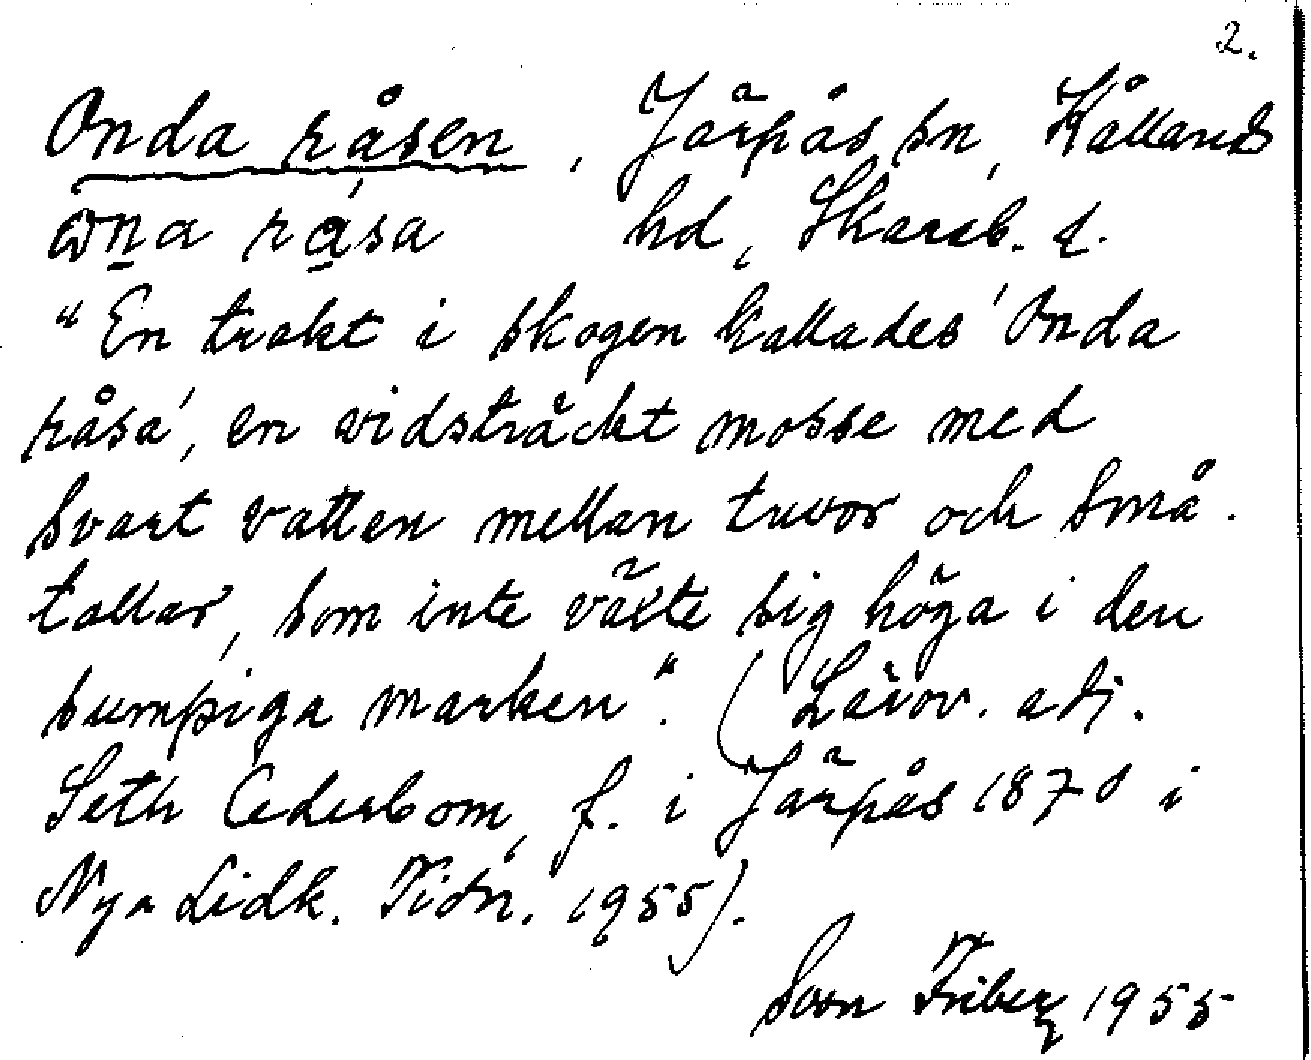 2.
Onda råsen, Järpås sn, Kållands
ɷna råsa hd, Skarab. l.
"En trakt i skogen kallades 'Onda
råsa', en vidsträckt mosse med
svart vatten mellan tuvor och små
tallar, som inte växte sig höga i den
sumpiga marken". (Lärov. adj.
Seth Cederbom, f. i Järpås 1870 i
Nya Lidk. Tidn. 1955).
Sven Friberg 1955